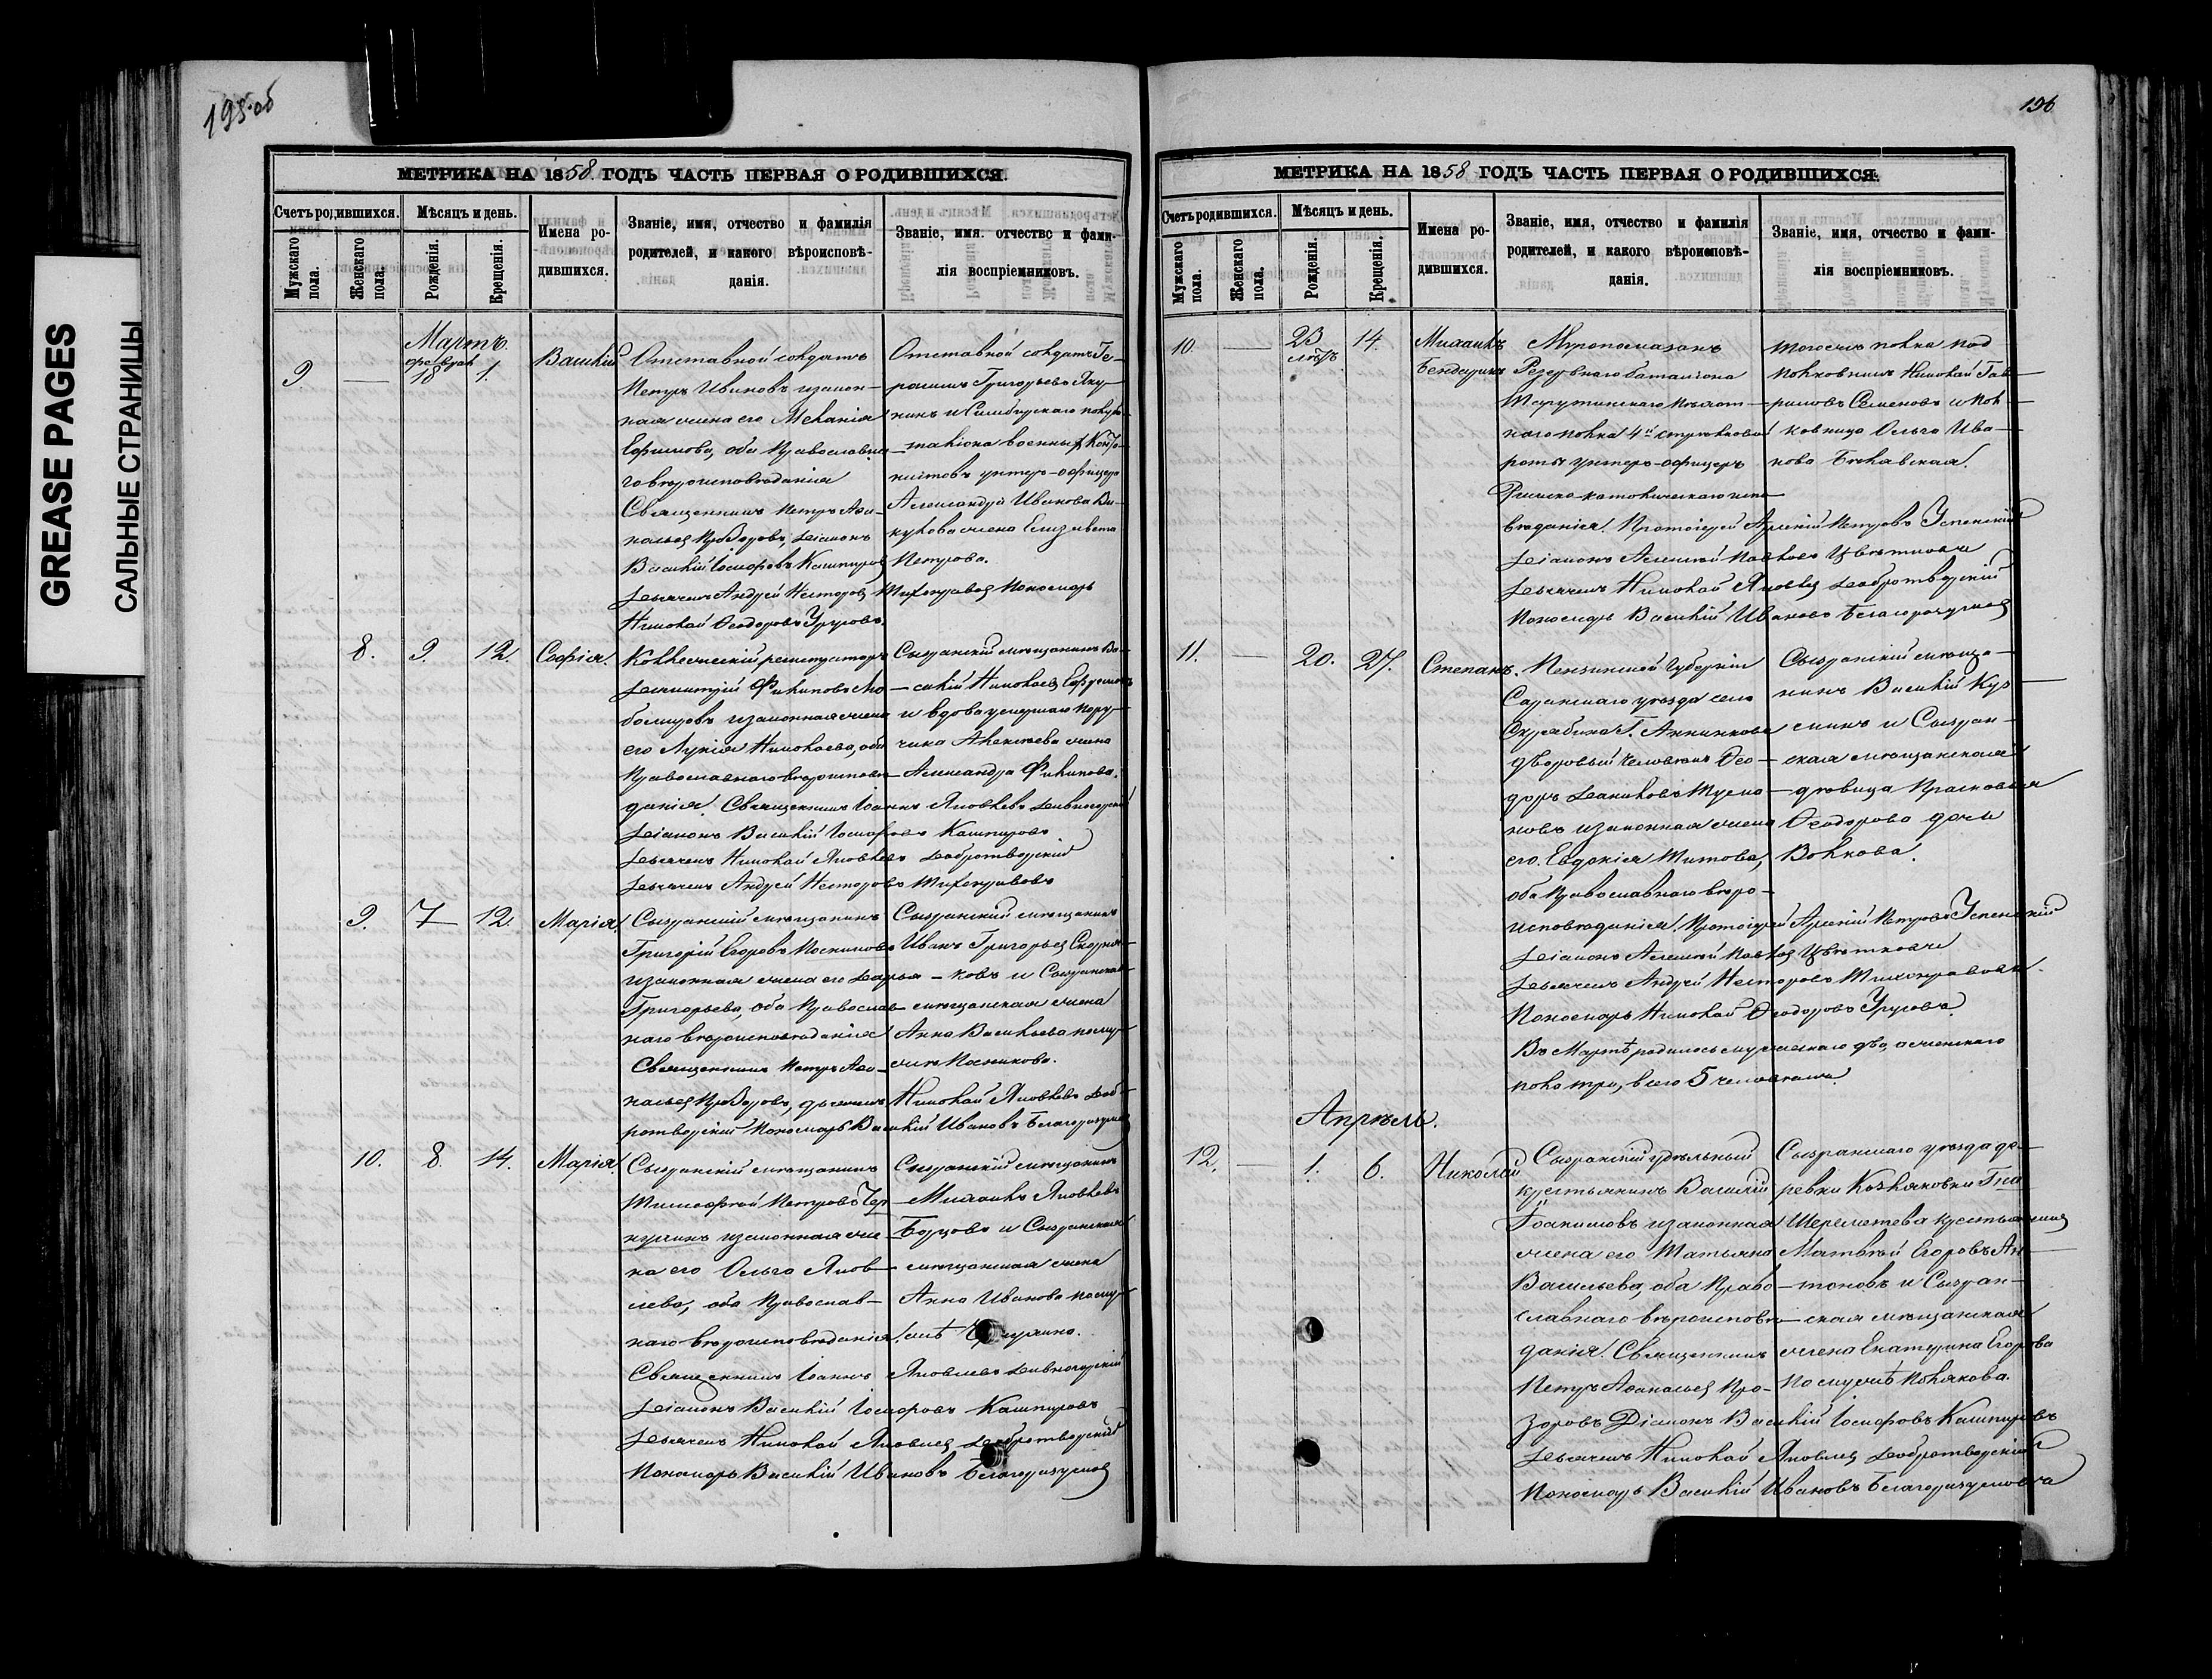 GREASE PAGES
САЛЬНЫЕ СТРАНИЦЫ
195 об
МЕТРИКА НА 1858. ГОДЪ ЧАСТЬ ПЕРВАЯ О РОДИВШИХСЯ.
Счетъ родившихся.
Мужскаго пола.
Женскаго пола.
Мѣсяцъ и день.
Рожденія.
Крещенія.
Имена ро-
дившихся.
Званіе, имя, отчество и фамилія
родителей, и какого вѣроисповѣ-
данія.
Званіе, имя. отчество и фами-
лія воспріемниковъ.
Мартъ.
9
—
февраля 18
1.
Василій
Отставной солдатъ
Петръ Ивановъ и закон-
ная жена его Меланія
Ефимова, оба Православна-
го вѣроисповѣданія
Священникъ Петръ Афа-
насьевъ Прозоровъ, Діаконъ
Василій Іосифовъ Кашпировъ
Дьячекъ Андрей Несторовъ Тихонравовъ Пономарь
Николай Ѳеодоровъ Урусовъ.
Отставной солдатъ Ге-
расимъ Григорьевъ Яку-
нинъ и Симбирскаго полуба-
таліона военныхъ Канто-
нистовъ унтеръ-офицера
Александра Иванова Ви-
кулова жена Елизавета
Петрова.
8.
9.
12.
Софія.
Коллежскій регистраторъ
Димитрій Филиповъ
и законная жена
его Лукія Николаева, оба
Православнаго вѣроисповѣ-
данія. Священникъ Іоаннъ Яковлевъ Дивногорскій
Діаконъ Василій Іосифовъ Кашпировъ
Дьячекъ Николай Яковлевъ Добротворскій
Дьячекъ Андрей Несторовъ Тихонравовъ
Сызранскій мѣщанинъ Ва-
силій Николаевъ
и вдова умершаго пору-
чика Алексѣева жена
Александра Филипова.
9.
7
12.
Марія.
Сызранскій мѣщанинъ
Григорій Егоровъ Посниковъ
и законная жена его Дарья
Григорьева, оба Православ-
наго вѣроисповѣданія
Священникъ Петръ Афа-
насьевъ Прозоровъ, дьячекъ Николай Яковлевъ Доб-
ротворскій Пономарь Василій Ивановъ Благоразумовъ
Сызранскій мѣщанинъ
Иванъ Григорьевъ
ковъ и Сызранская
мѣщанская жена
Анна Васильева по му-
жѣ Посникова.
10.
8.
14.
Марія.
Сызранскій мѣщанинъ
Тимофей Петровъ Чер-
нухинъ и законная же-
на его Ольга Яков-
лева, оба Православ-
наго вѣроисповѣданія.
Священникъ Іоаннъ Яковлевъ Дивногорскій
Діаконъ Василій Іосифовъ Кашпировъ
Дьячекъ Николай Яковлевъ Добротворскій
Пономарь Василій Ивановъ Благоразумовъ
Сызранскій мѣщанинъ
Михаилъ Яковлевъ
Борцовъ и Сызранская
мѣщанская жена
Анна Иванова по му-
жѣ
196
МЕТРИКА НА 1858 ГОДЪ ЧАСТЬ ПЕРВАЯ О РОДИВШИХСЯ.
Счетъ родившихся.
Мужскаго пола.
Женскаго пола.
Мѣсяцъ и день.
Рожденія.
Крещенія.
Имена ро-
дившихся.
Званіе, имя, отчество и фамилія
родителей, и какого вѣроисповѣ-
данія.
Званіе, имя, отчество и фами-
лія воспріемниковъ.
10.
—
23
14.
Михаилъ
Мѵропомазанъ
Резервнаго баталіона
Тарутинскаго пѣхот-
наго полка 4й стрѣлковой
роты унтеръ-офицеръ
Римско-католическаго испо-
вѣданія. Протоіерей Арсеній Петровъ Успенскій
Діаконъ Алексѣй Павловъ Цвѣтковъ
Дьячекъ Николай Яковлевъ Добротворскій
Пономарь Василій Ивановъ Благоразумовъ
того же полка под
полковникъ Николай Гав-
риловъ Семеновъ и пол-
ковница Ольга Ива-
нова
11.
—
20.
27.
Степанъ.
Пензинской Губерніи
Саранскаго уѣзда села
Скрябина Г. Анненкова
дворовый человѣкъ Ѳео-
доръ Даниловъ
новъ и законная жена
его Евдокія Титова,
оба Православнаго вѣро-
исповѣданія. Протоіерей Арсеній Петровъ Успенскій
Діаконъ Алексѣй Павловъ Цвѣтковъ
Дьячекъ Андрей Несторовъ Тихонравовъ.
Пономарь Николай Ѳеодоровъ Урусовъ.
Въ Мартѣ родилось мужескаго два, а женскаго
пола три, всего 5 человѣкъ.
Сызранскій мѣща-
нинъ Василій Куз-
минъ и Сызран-
ская мѣщанская
дѣвица Прасковья
Ѳеодорова дочь
Волкова.
Апрѣль.
12.
—
1.
6.
Николай
Сызранскій удѣльный
крестьянинъ Василій
Іоакимовъ и законная
жена его Татьяна
Васильева, оба Право-
славнаго вѣроисповѣ-
данія. Священникъ
Петръ Афанасьевъ Про-
зоровъ Діаконъ Василій Іосифовъ Кашпировъ
Дьячекъ Николай Яковлевъ Добротворскій
Пономарь Василій Ивановъ Благоразумовъ
Сызранскаго уѣзда де-
ревни Козляковки Г-на
Шереметева крестьянинъ
Матвѣй Егоровъ Ан-
тоновъ и Сызран-
ская мѣщанская
жена Екатерина Егорова
по мужѣ Полякова.